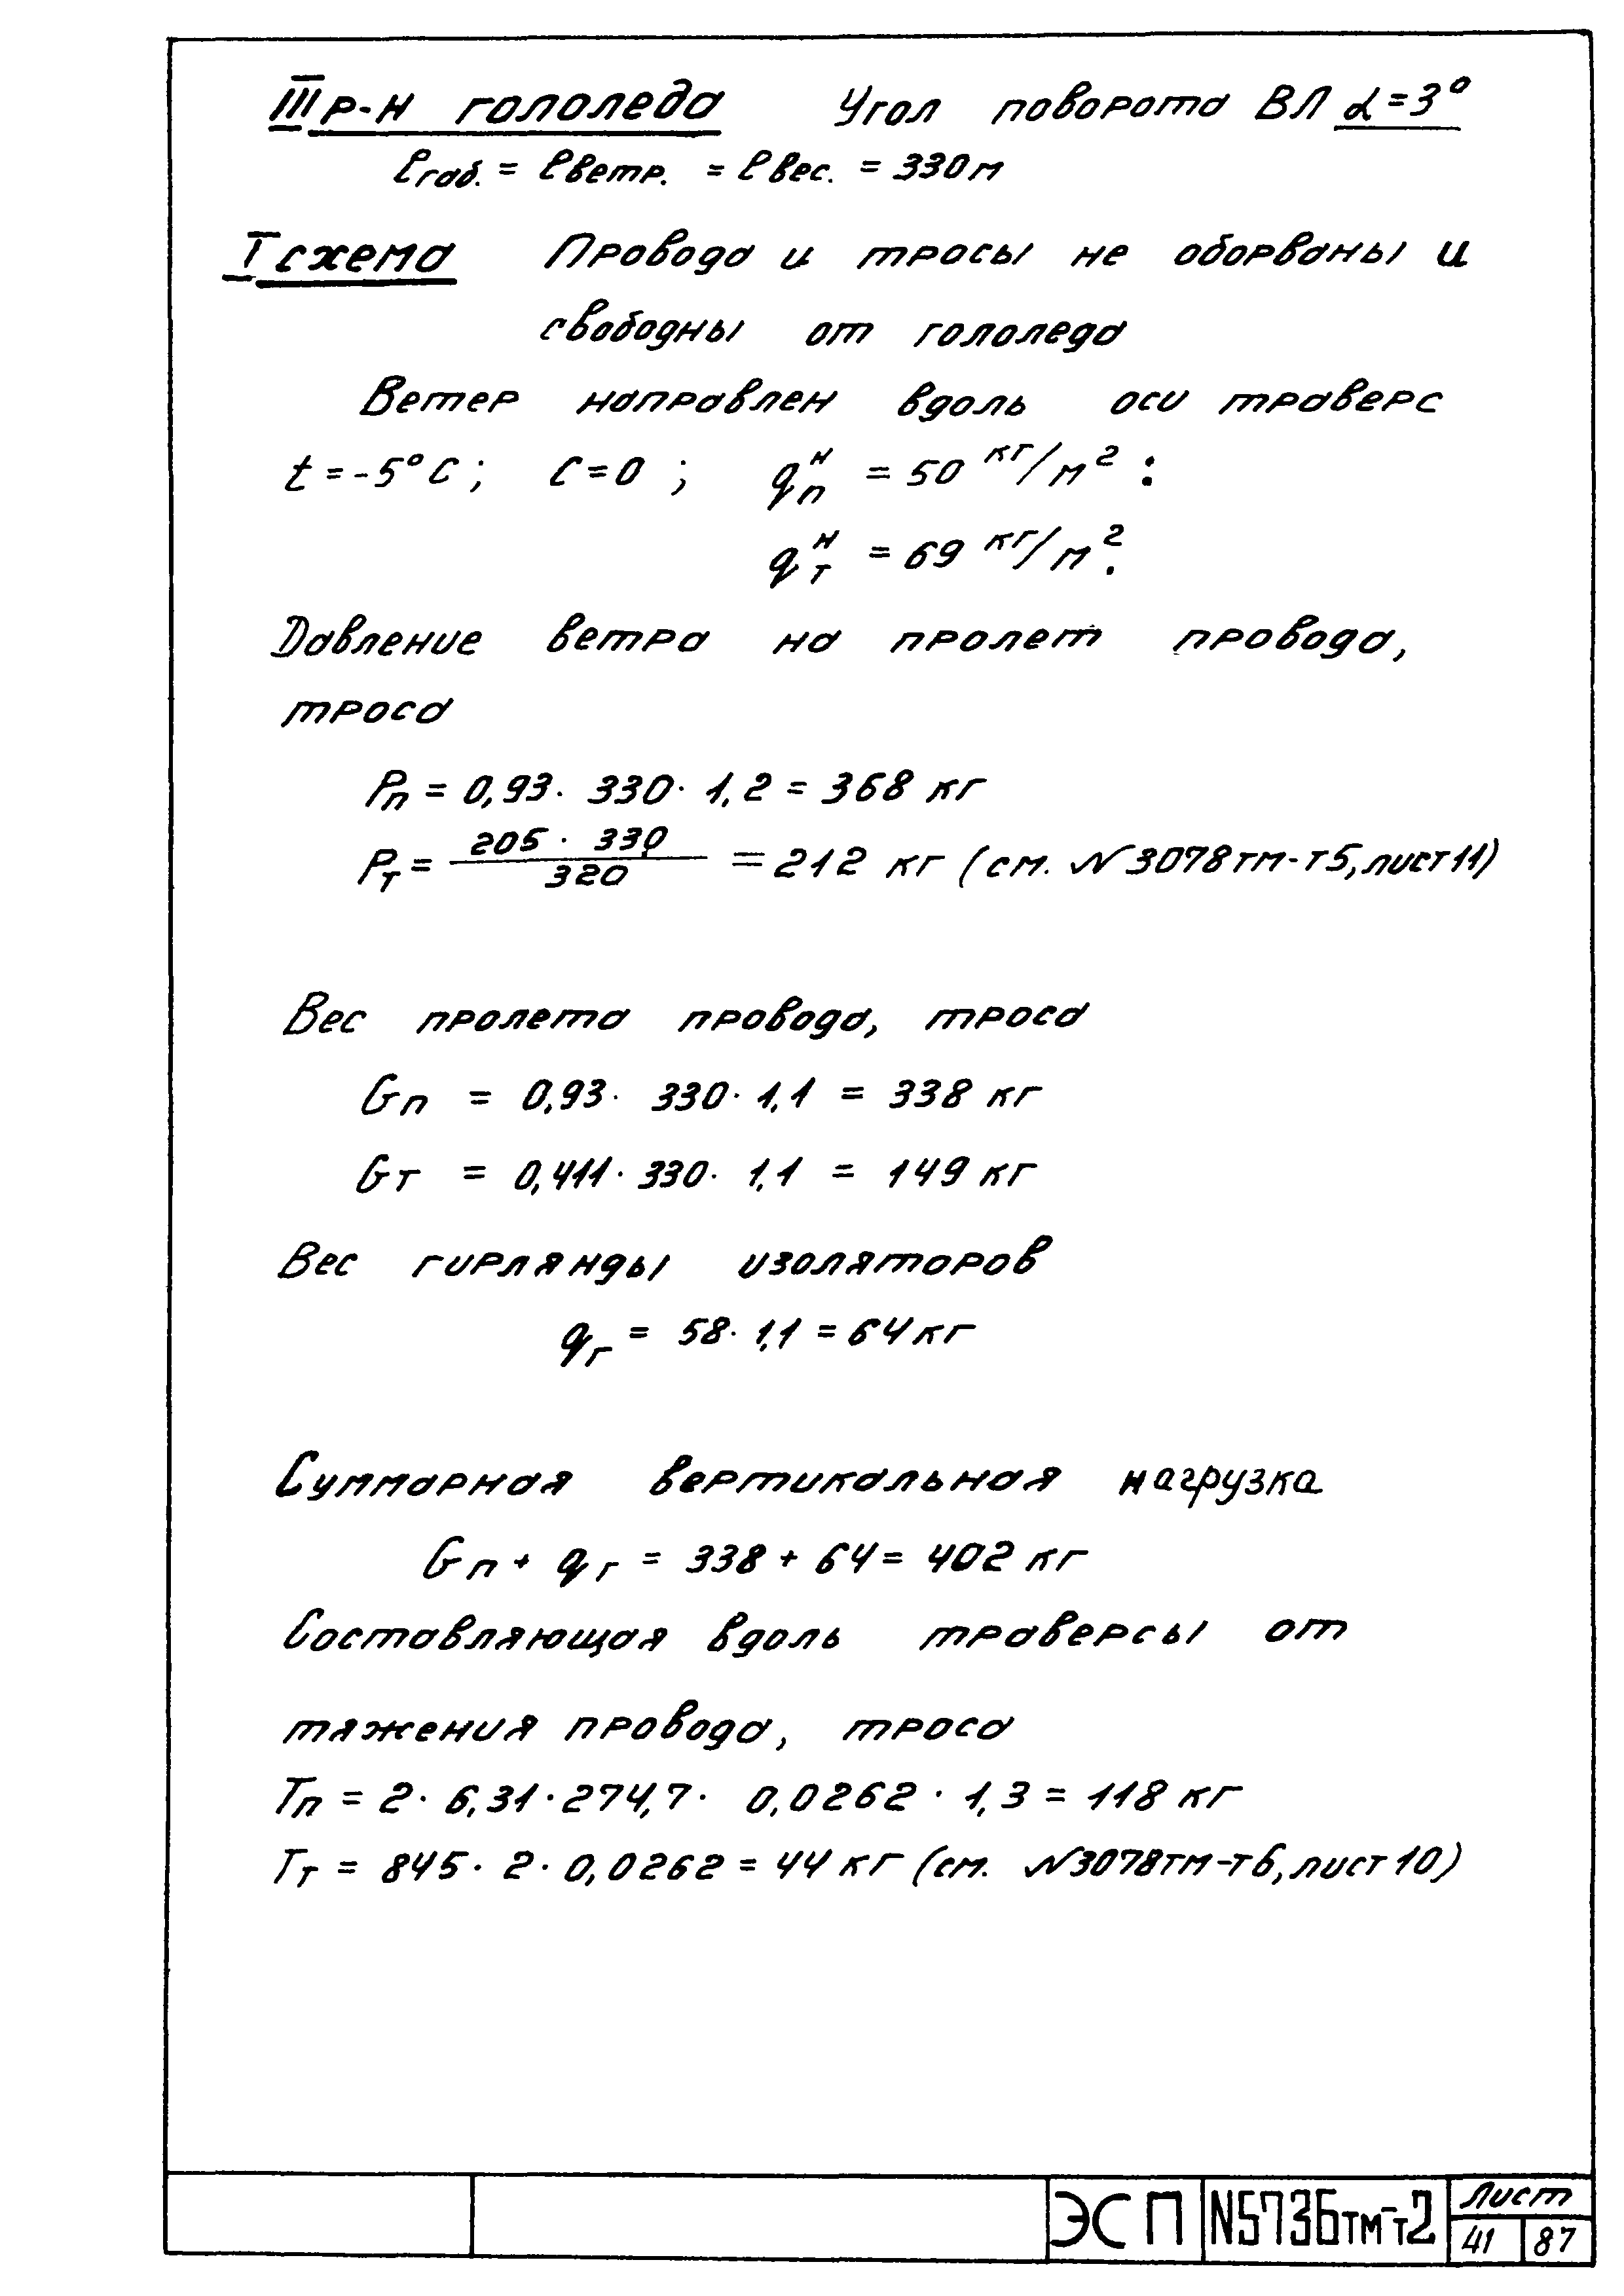 III р-н гололеда Угол поворота ВЛ α=3°
lгаб. = lветр. = lвес. = 330м
I схема Провода и тросы не оборваны и
свободны от гололеда
Ветер направлен вдоль оси траверс
t=-5°C; C=0; qнп = 50 кг/м²:
qнт = 69 кг/м².
Давление ветра на пролет провода,
троса
Pп = 0,93· 330· 1,2 = 368 кг
Pт = 205 · 330 / 320 = 212 кг (см. N3078тм-т5, лист11)
Вес пролета провода, троса
Gп = 0,93· 330· 1,1 = 338 кг
Gт = 0,411· 330· 1,1 = 149 кг
Вес гирлянды изоляторов
qг = 58· 1,1 = 64кг
Суммарная вертикальная нагрузка
Gп + qг = 338 + 64 = 402 кг
Составляющая вдоль траверсы от
тяжения провода, троса
Tп = 2· 6,31·274,7· 0,0262 · 1,3 = 118 кг
Tт = 845· 2· 0,0262 = 44 кг (см. N3078тм-т6, лист 10)
ЭСП N5736тм-т2 Лист
41 87